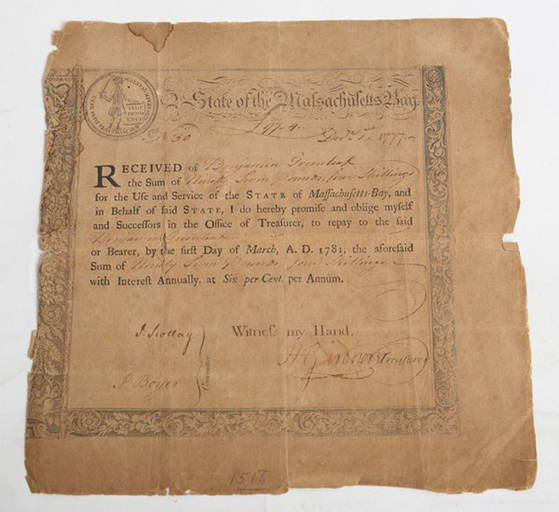 State of the Massachusetts-Bay.
Decr. 1st. 1777
RECEIVED of Benjamin Greenleaf
the Sum of Ninety Seven Pounds, four Shillings
for the Use and Service of the STATE of Massachusetts-Bay, and
in Behalf of said STATE, I do hereby promise and oblige myself
and Successors in the Office of Treasurer, to repay to the said
Benjamin Greenleaf
or Bearer, by the first Day of March, A. D. 1781, the aforesaid
Sum of Ninety Seven Pounds four Shillings
with Interest Annually, at Six per Cent. per Annum.
Witness my Hand.
J. Scollay
H Gardner Treasurer
P. Boyer
Committee
1518